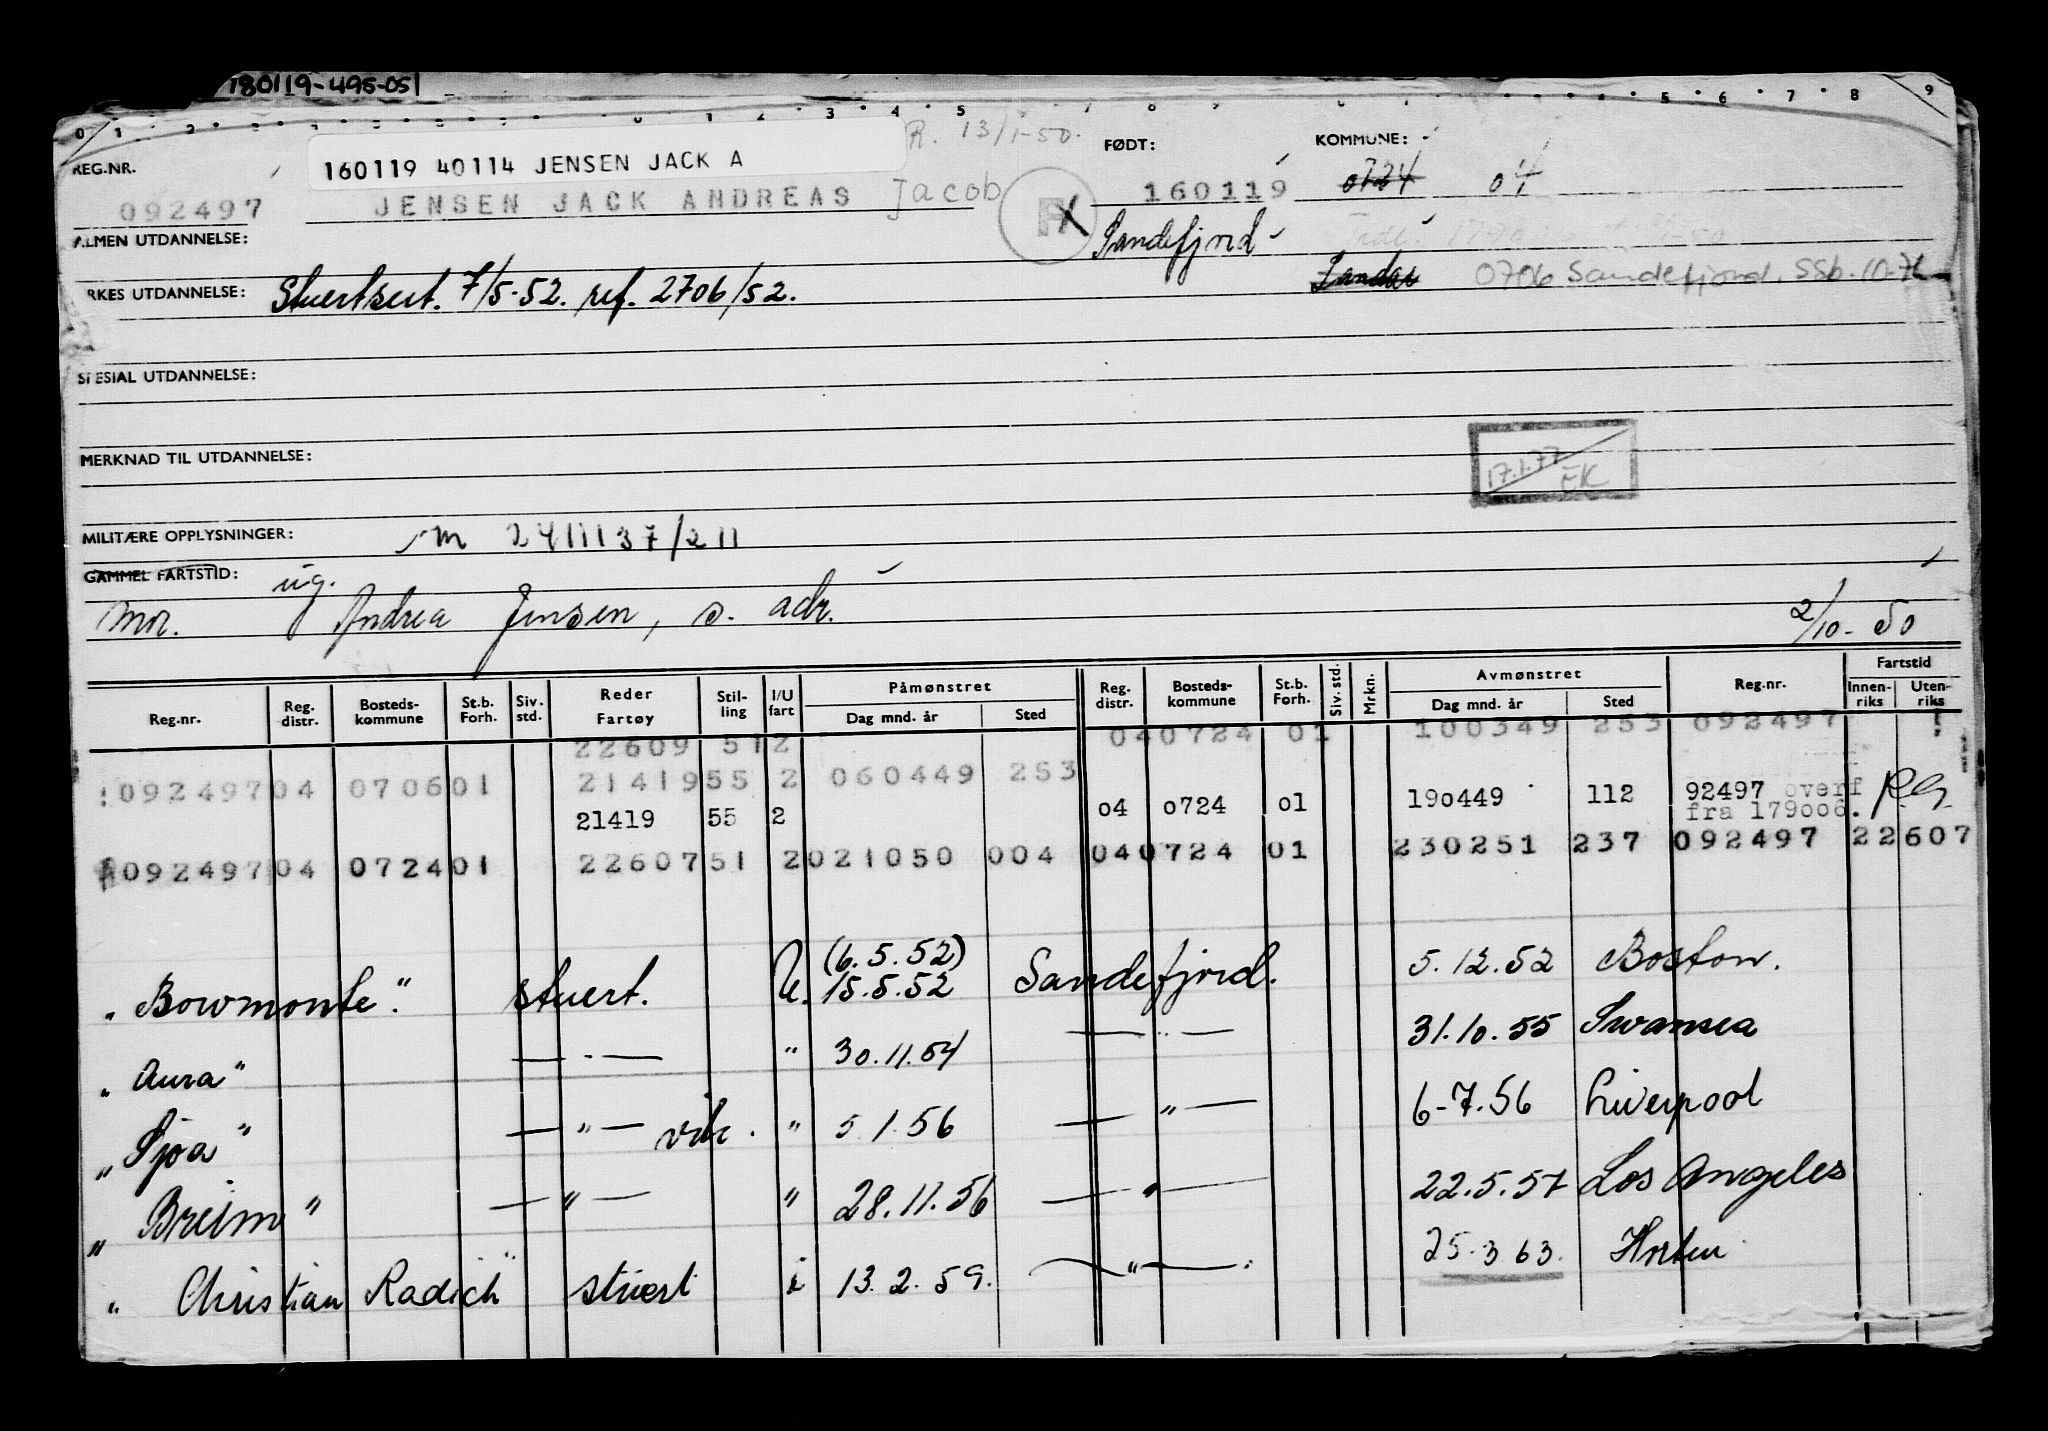 180119-495-051
0 1 2 3 4 5 6 7 8 9 0 1 2 3 4 5 6 7 8 9
R. 13/1-50.
REG.NR. 160119 40114 JENSEN JACK A FØDT: KOMMUNE:
092497 JENSEN JACK ANDREAS Jacob 160119 0724 04
ALMEN UTDANNELSE: Sandefjord
RKES UTDANNELSE: Stuertsert. 7/5-52. ref. 2706/52. Sandar 0706 Sandefjord, SSb. 10-76
SPESIAL UTDANNELSE:
MERKNAD TIL UTDANNELSE: 17.1.77 EK
MILITÆRE OPPLYSNINGER: m 2411137/211
GAMMEL FARTSTID: ug.
Mor. Andrea Jensen, s. adr. 2/10-50
Reg.nr. Reg. distr. Bosteds-kommune St.b. Forh. Siv. std. Reder Fartøy Stil-ling I/U fart Påmønstret Dag mnd. år Sted Reg. distr. Bosteds-kommune St.b. Forh. Siv. std. Mrkn. Avmønstret Dag mnd. år Sted Reg.nr. Fartstid Innen-riks Uten-riks
22609 51 2 04 0724 01 100349 253 092497
092497 04 0706 01 21419 55 2 060449 253
21419 55 2 04 0724 01 190449 112 92497 overf fra 179006.
092497 04 0724 01 22607 51 2 021050 004 04 0724 01 230251 237 092497 22607
"Bowmonte". stuert. U. (6.5.52) 15.5.52 Sandefjord. 5.12.52 Boston.
"Aura" — " — " 30.11.54 — " — 31.10.55 Swansea
"Sjoa" — " — vik. " 5.1.56 — " — 6-7.56 Liverpool
"Breim" — " — " 28.11.56 — " — 22.5.57 Los Angeles
"Christian Radich" stuert i 13.2.59. — " — 25.3.63. Horten